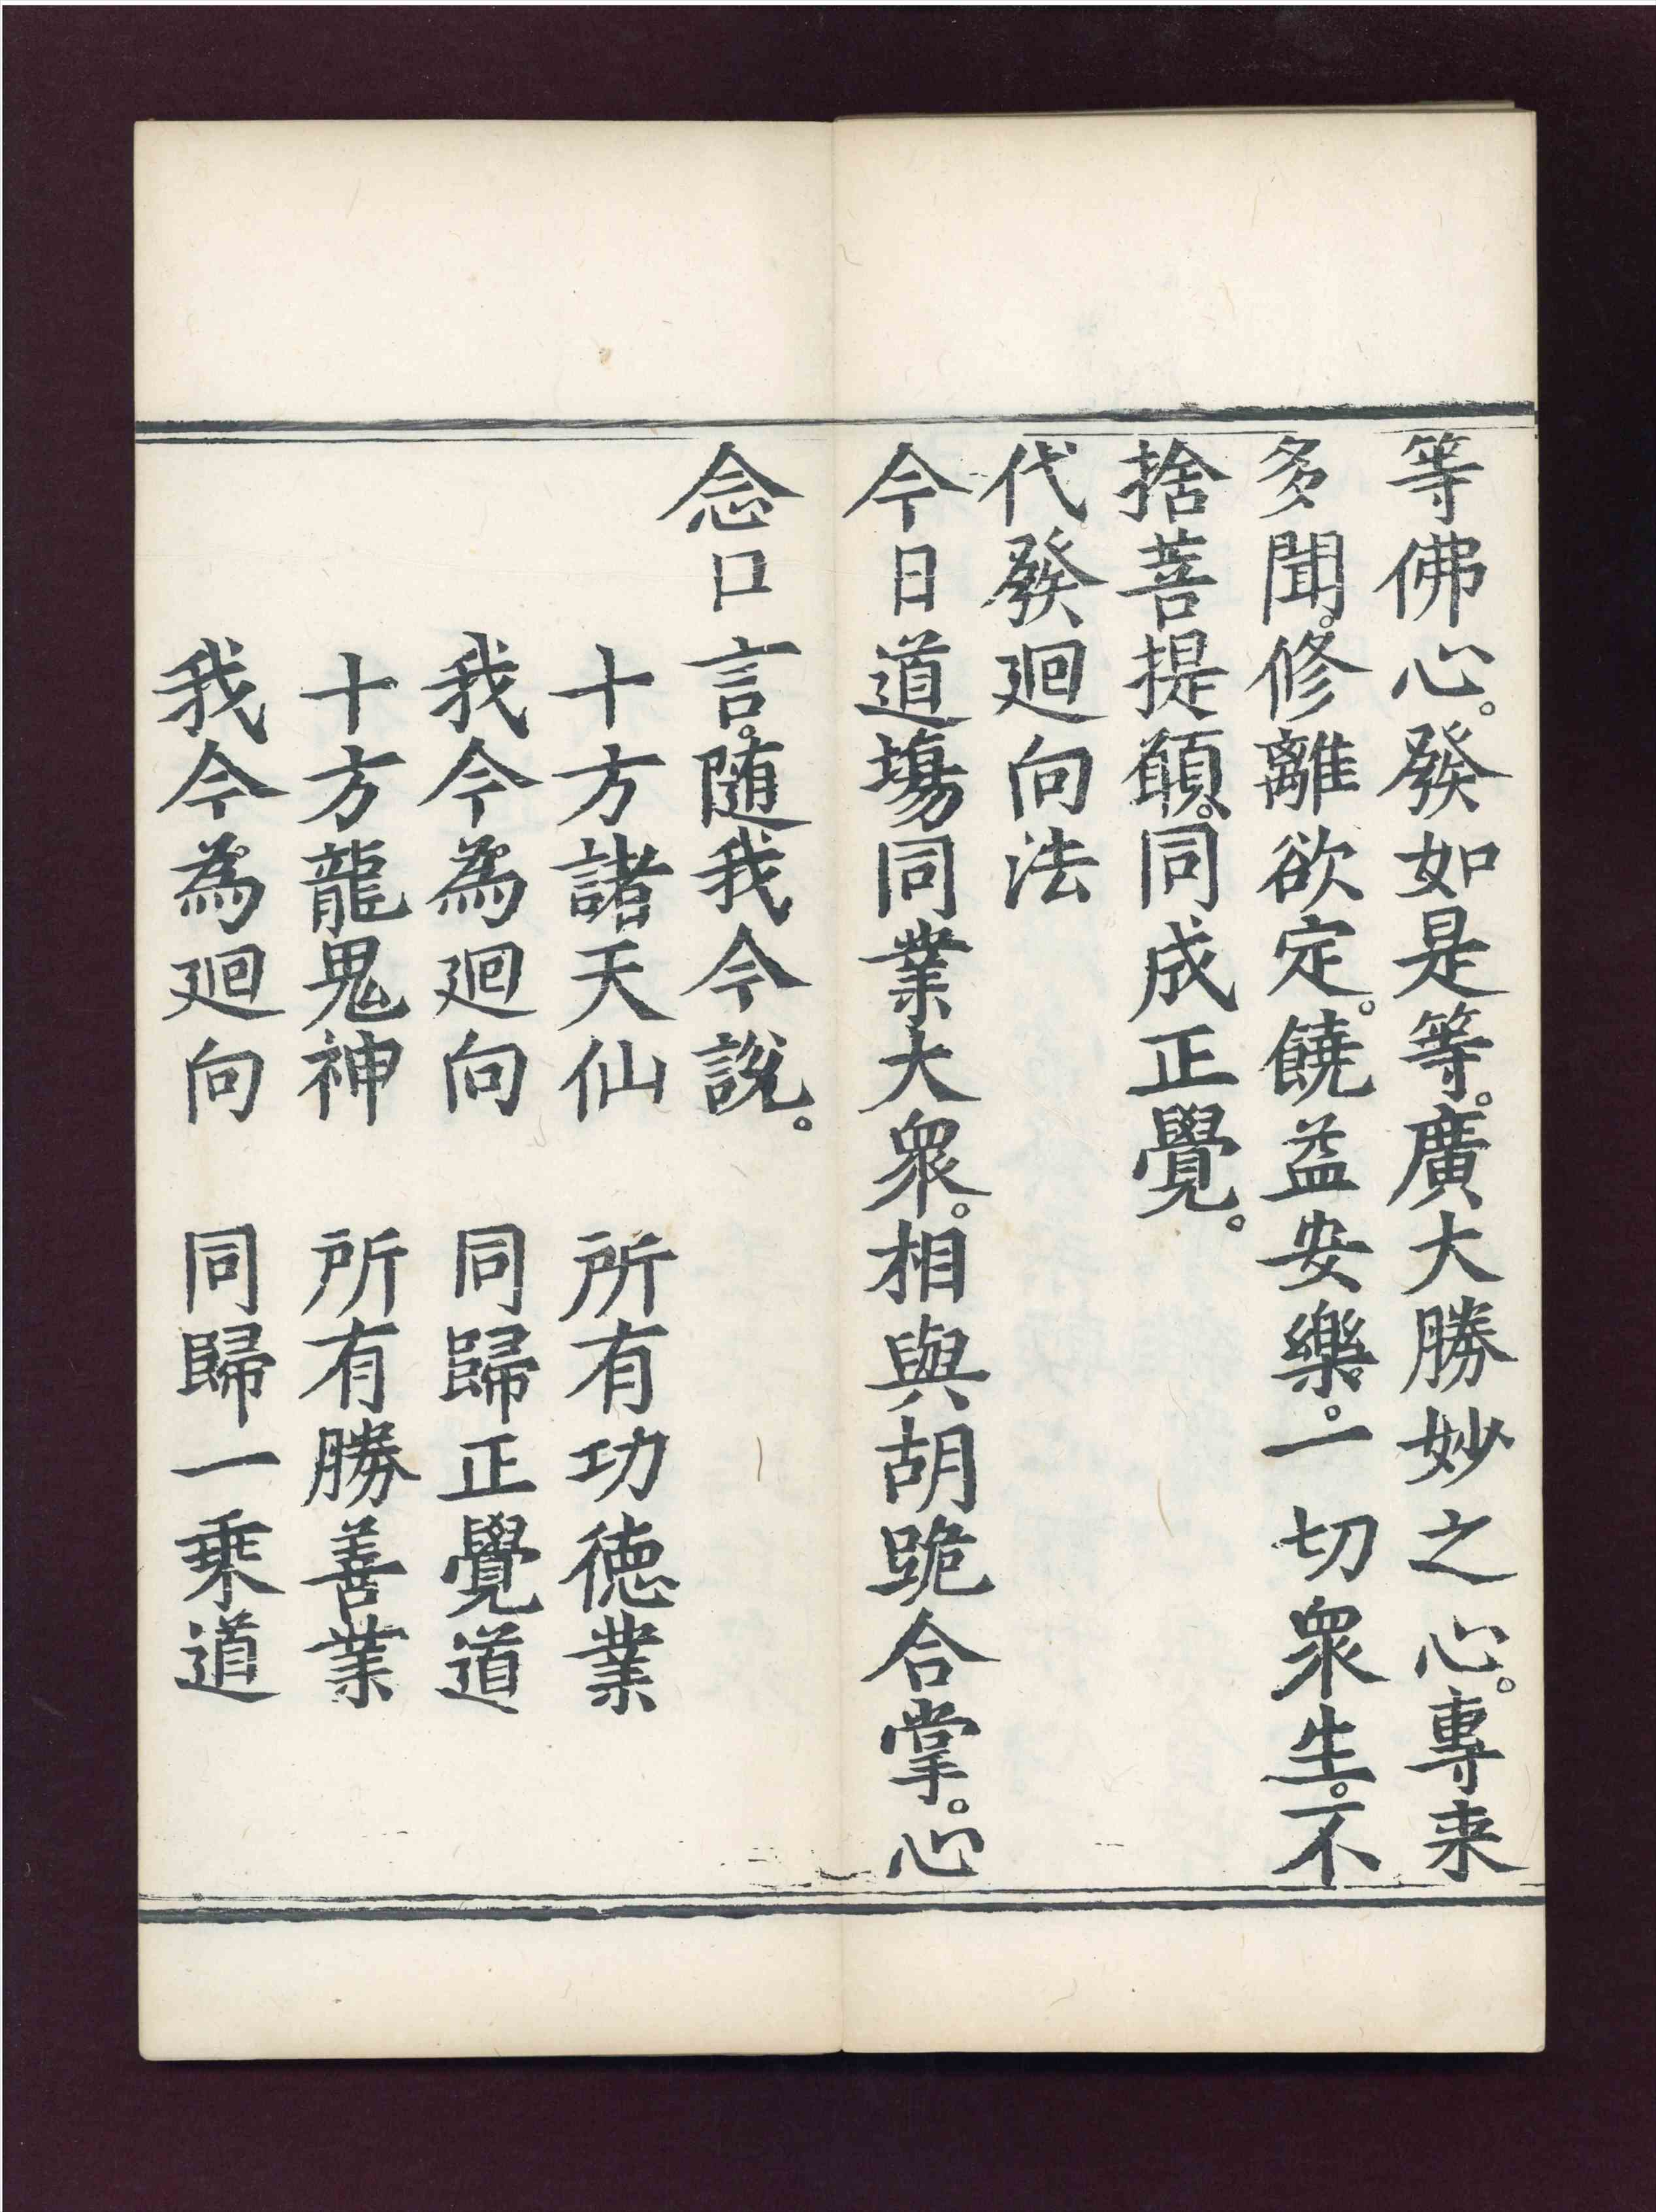 等佛心。發如是等。廣大勝妙之心。專来
多聞。修離欲定。饒益安樂。一切衆生。不
捨菩提願。同成正覺。
代發迴向法
今日道塲同業大衆。相與胡跪合掌。心
念口言。随我今說。
十方諸天仙　所有功徳業
我今為迴向　同歸正覺道
十方龍鬼神　所有勝善業
我今為迴向　同歸一乘道